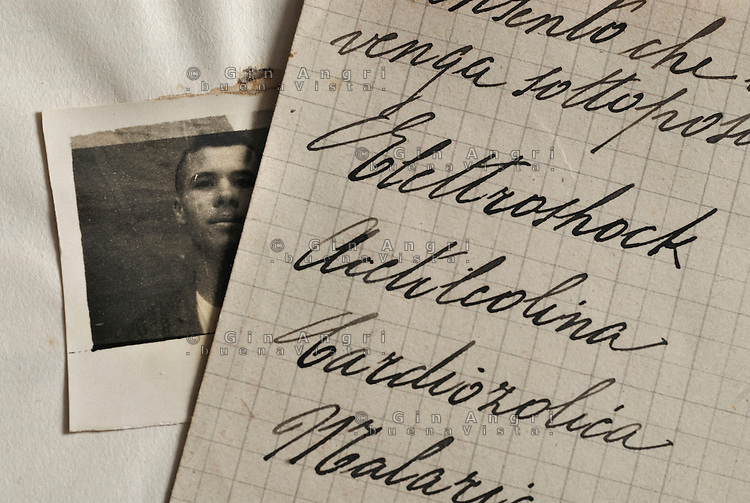 onsento che
venga sottopos
Elettroshock
Acetilcolina
Cardiozolica
Malari
© Gin Angri
.buenaVista.
© Gin Angri
.buenaVista.
© Gin Angri
.buenaVista.
© Gin Angri
.buenaVista.
© Gin Angri
.buenaVista.